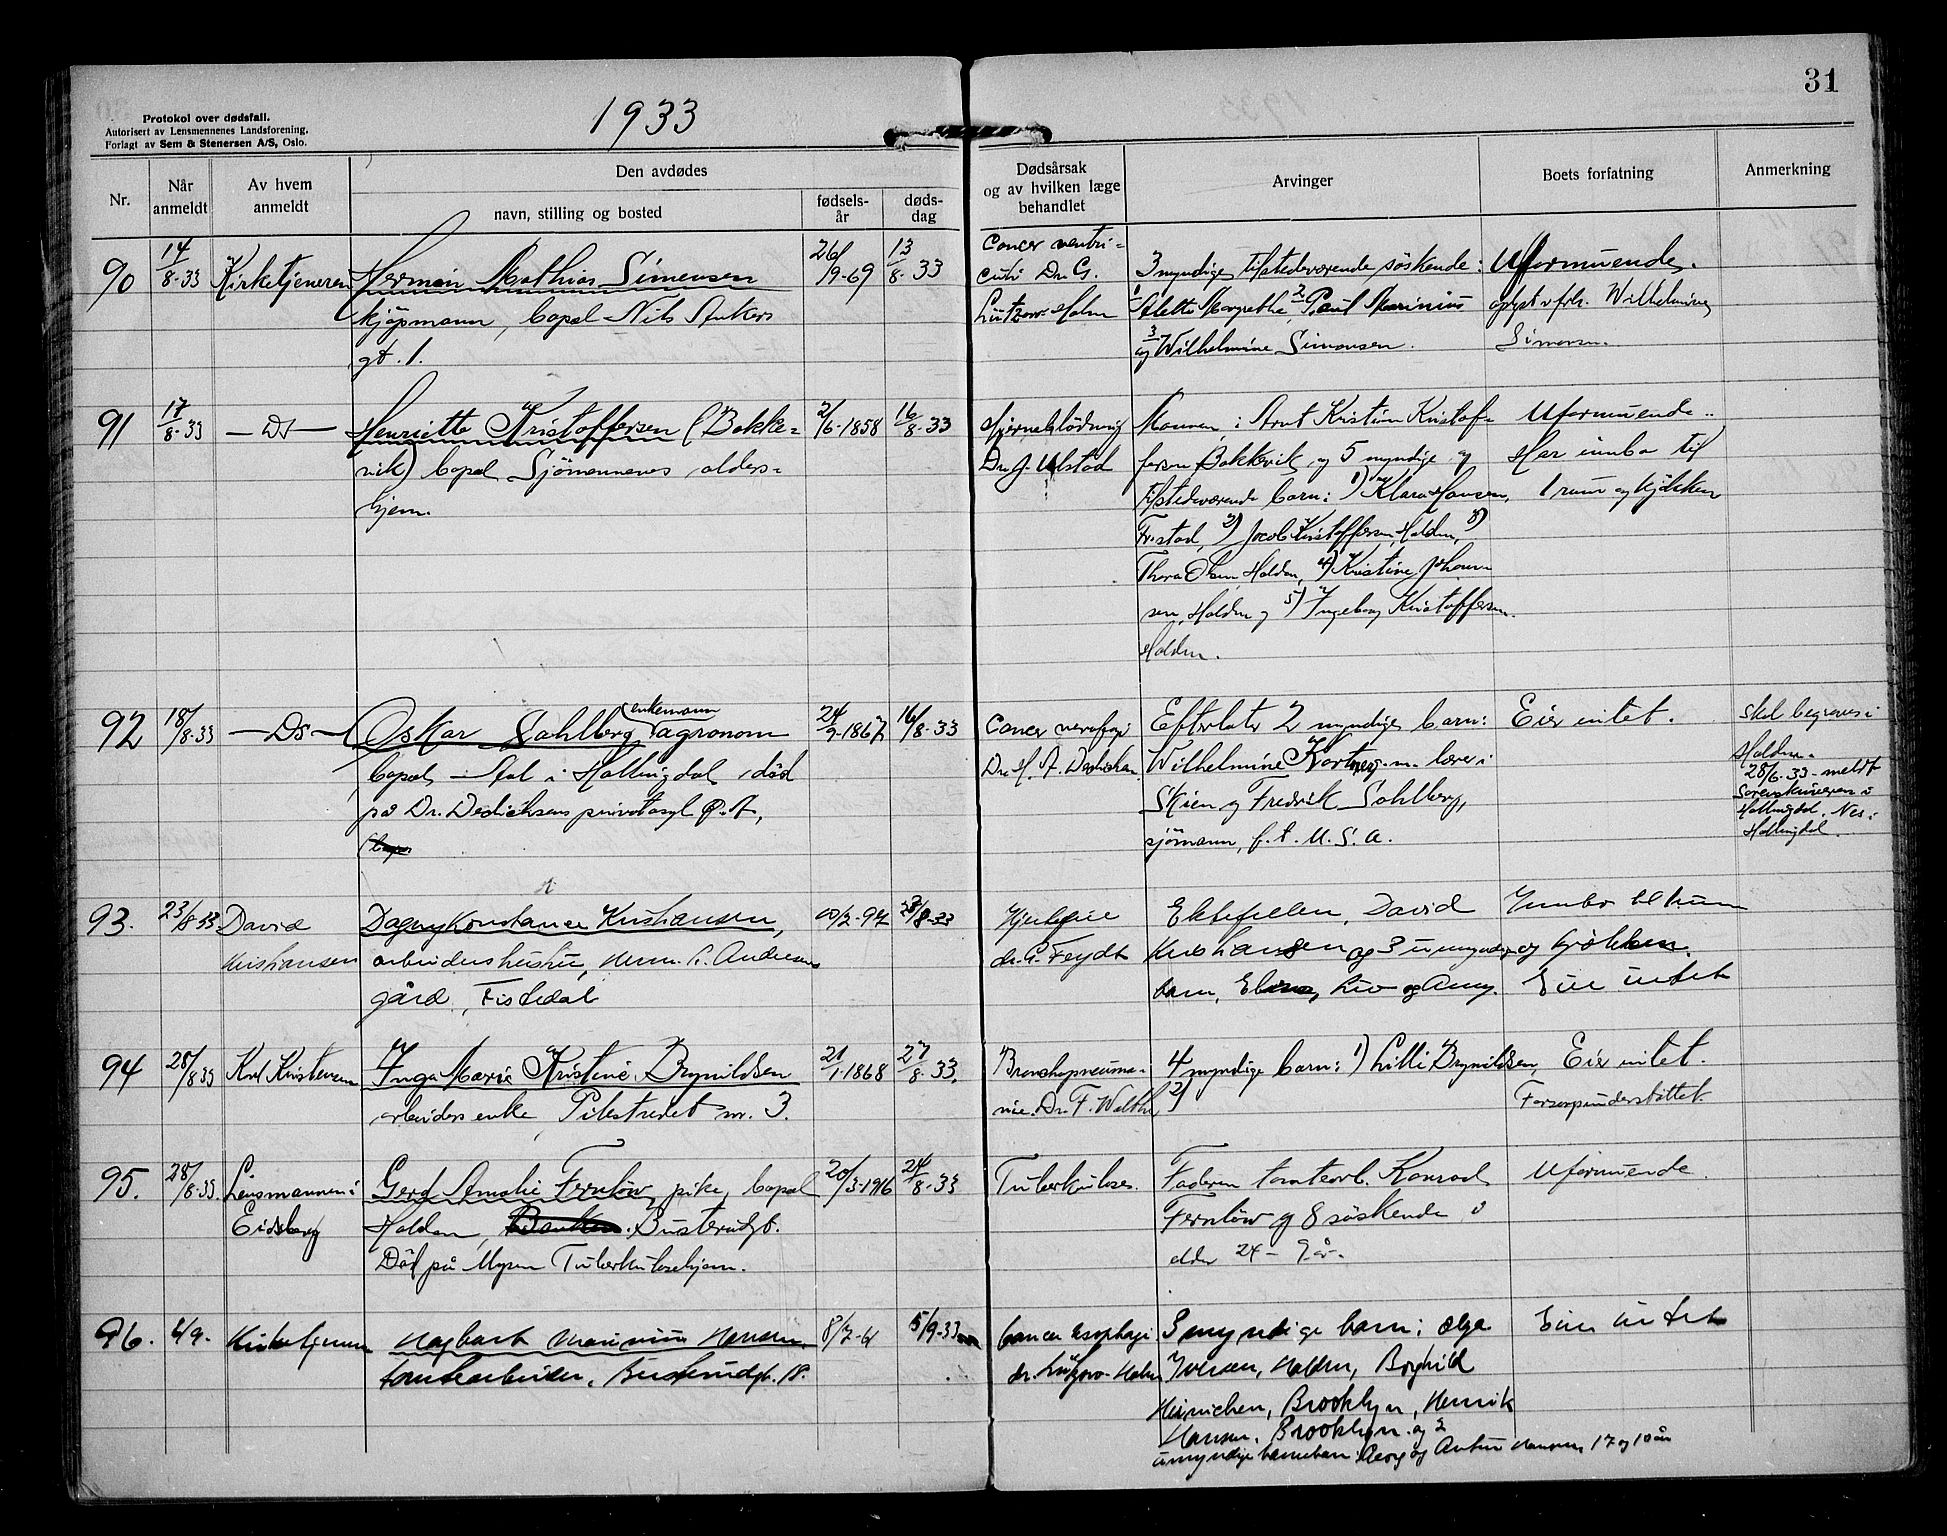 31
Protokol over dødsfall.
Autorisert av Lensmennenes Landsforening.
Forlagt av Sem & Stenersen A/S, Oslo.
1933
Nr.
Når anmeldt
Av hvem anmeldt
Den avdødes
navn, stilling og bosted
fødsels-år
døds-dag
Dødsårsak og av hvilken læge behandlet
Arvinger
Boets forfatning
Anmerkning
90
14/8-33
Kirketjeneren
Herman Mathias Simensen
kjöpmann, bopel Nils Ankers
gt. 1.
26/9-69
13/8-33
Cancer ventri=
culi Dr. G.
Lützow-Holm
3 myndige tilstedeværende söskende:
1 Alette Margrethe, 2 Paul Marinius
og 3 Wilhelmine Simensen.
Uformuende,
oplyst v frk. Wilhelmine
Simensen.
91
17/8-33
—Ds—
Henriette Kristoffersen (Bakke=
vik) bopel Sjömennenes alders=
hjem.
2/6-1858
16/8-33
Hjerneblödning
Dr. J. Ulstad
Mannen: Arnt Kristian Kristof=
fersen Bakkevik og 5 myndige og
tilstedeværende barn: 1) Klara Hansen,
2) Jacob Kristoffersen, Halden, 3)
Thora Olsen Halden, 4) Kristine Johan-
sen, Halden og 5) Ingeborg Kristoffersen
Halden.
Uformuende..
Har innbo til
1 rum og kjökken
92
18/8-33
—Ds—
Oskar Sahlberg enkemann agronom
bopel Ål i Hallingdal, död
på Dr. Dedichens privatasyl Ö. A,
24/9-1867
16/8-33
Cancer
Dr. H. A. Dedichen.
Efterlater 2 myndige barn:
Wilhelmine
Skien og Fredrik Sahlberg,
sjömann, f.t. U.S.A.
Eier intet.
Skal begraves i
Halden.
meldt
Sorenskriveren i
Hallingdal, Nes i
Hallingdal.
93.
23/8-33
David
Kristiansen
Dagny Konstance Kristiansen,
arbeiderhustru, Herm. C. Andersens
gård, Tistedal
/8-33
dr. C. Feydt
Ektefellen, David
Kristiansen og 3 umyndige
barn, Liv og Anny.
Innbo til 1 rum
og kjökken.
Eier intet
94
28/8-33
Karl Kristensen
Inga Marie Kristine Brynildsen
arbeiders enke, Pilestredet nr. 3.
21/1-1868
27/8-33.
Bronchopneumo-
nie. Dr. F. Walthe
4 myndige barn: 1) Lilli Brynildsen,
2)
Eier intet.
Forsorgsunderstöttet.
95.
28/8-33
Lensmannen i
Eidsberg
Gerd Amalie Fernlöw, pike, bopel
Halden, Busterudgt.
Död på Mysen Tuberkulosehjem.
20/3-1916
24/8-33
Tuberkulose.
Faderen tomtearb. Konrad
Fernlöw og 8 söskende i
alder 24 - 9 år.
Uformuende
96.
6/9-
Kirketjeneren
Hagbart Marinius Hansen
tomtearbeider, Busterudgt. 18.
8/7-61
5/9-33
Cancer esophagi
dr. Lützow-Holm
3 myndige barn: Olga
Iversen, Halden, Borghild
Heinichen, Brooklyn, Henrik
Hansen, Brooklyn og 2
umyndige barnebarn: Georg og Artur Hansen, 17 og 10 år
Eier intet